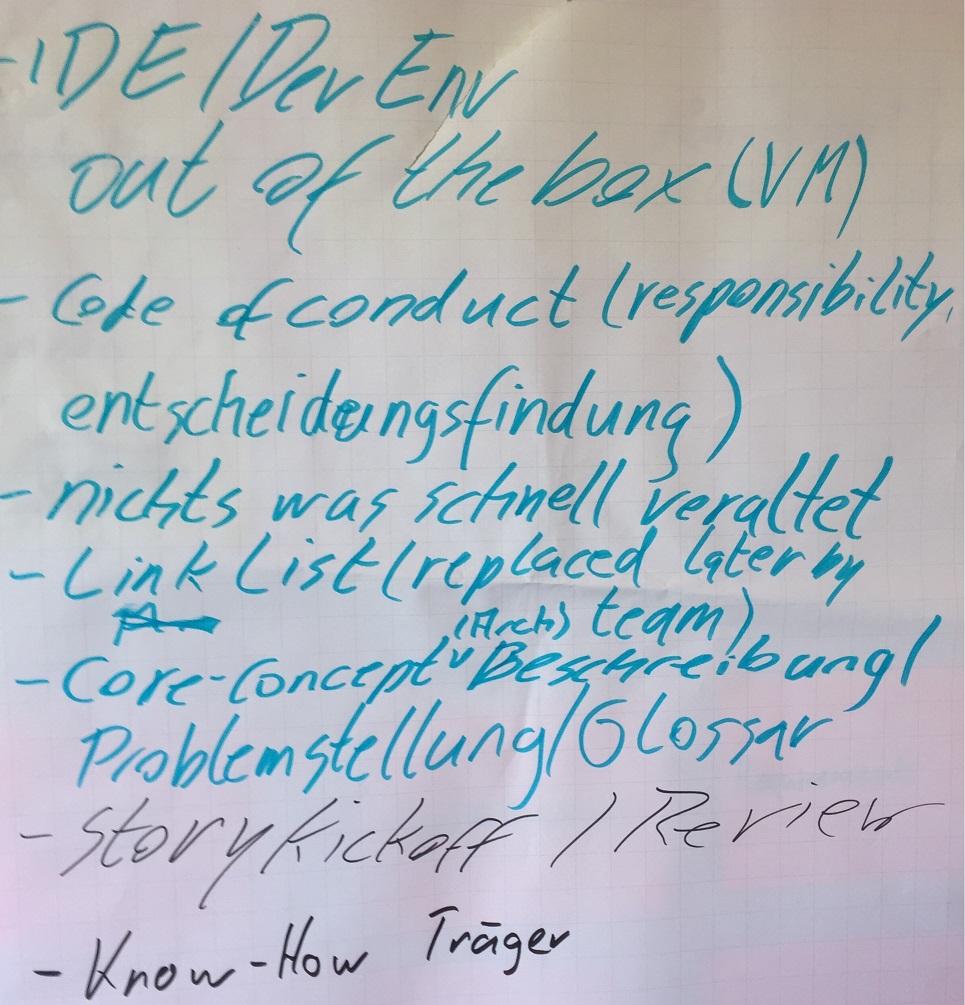 - IDE / Dev Env
out of the box (VM)
- Code of conduct (responsibility,
entscheidungsfindung)
- nichts was schnell veraltet
- Link List (replaced later by
team)
- Core-Concept (Arch) Beschreibung/
Problemstellung/Glossar
- Story Kickoff / Review
- Know-How Träger